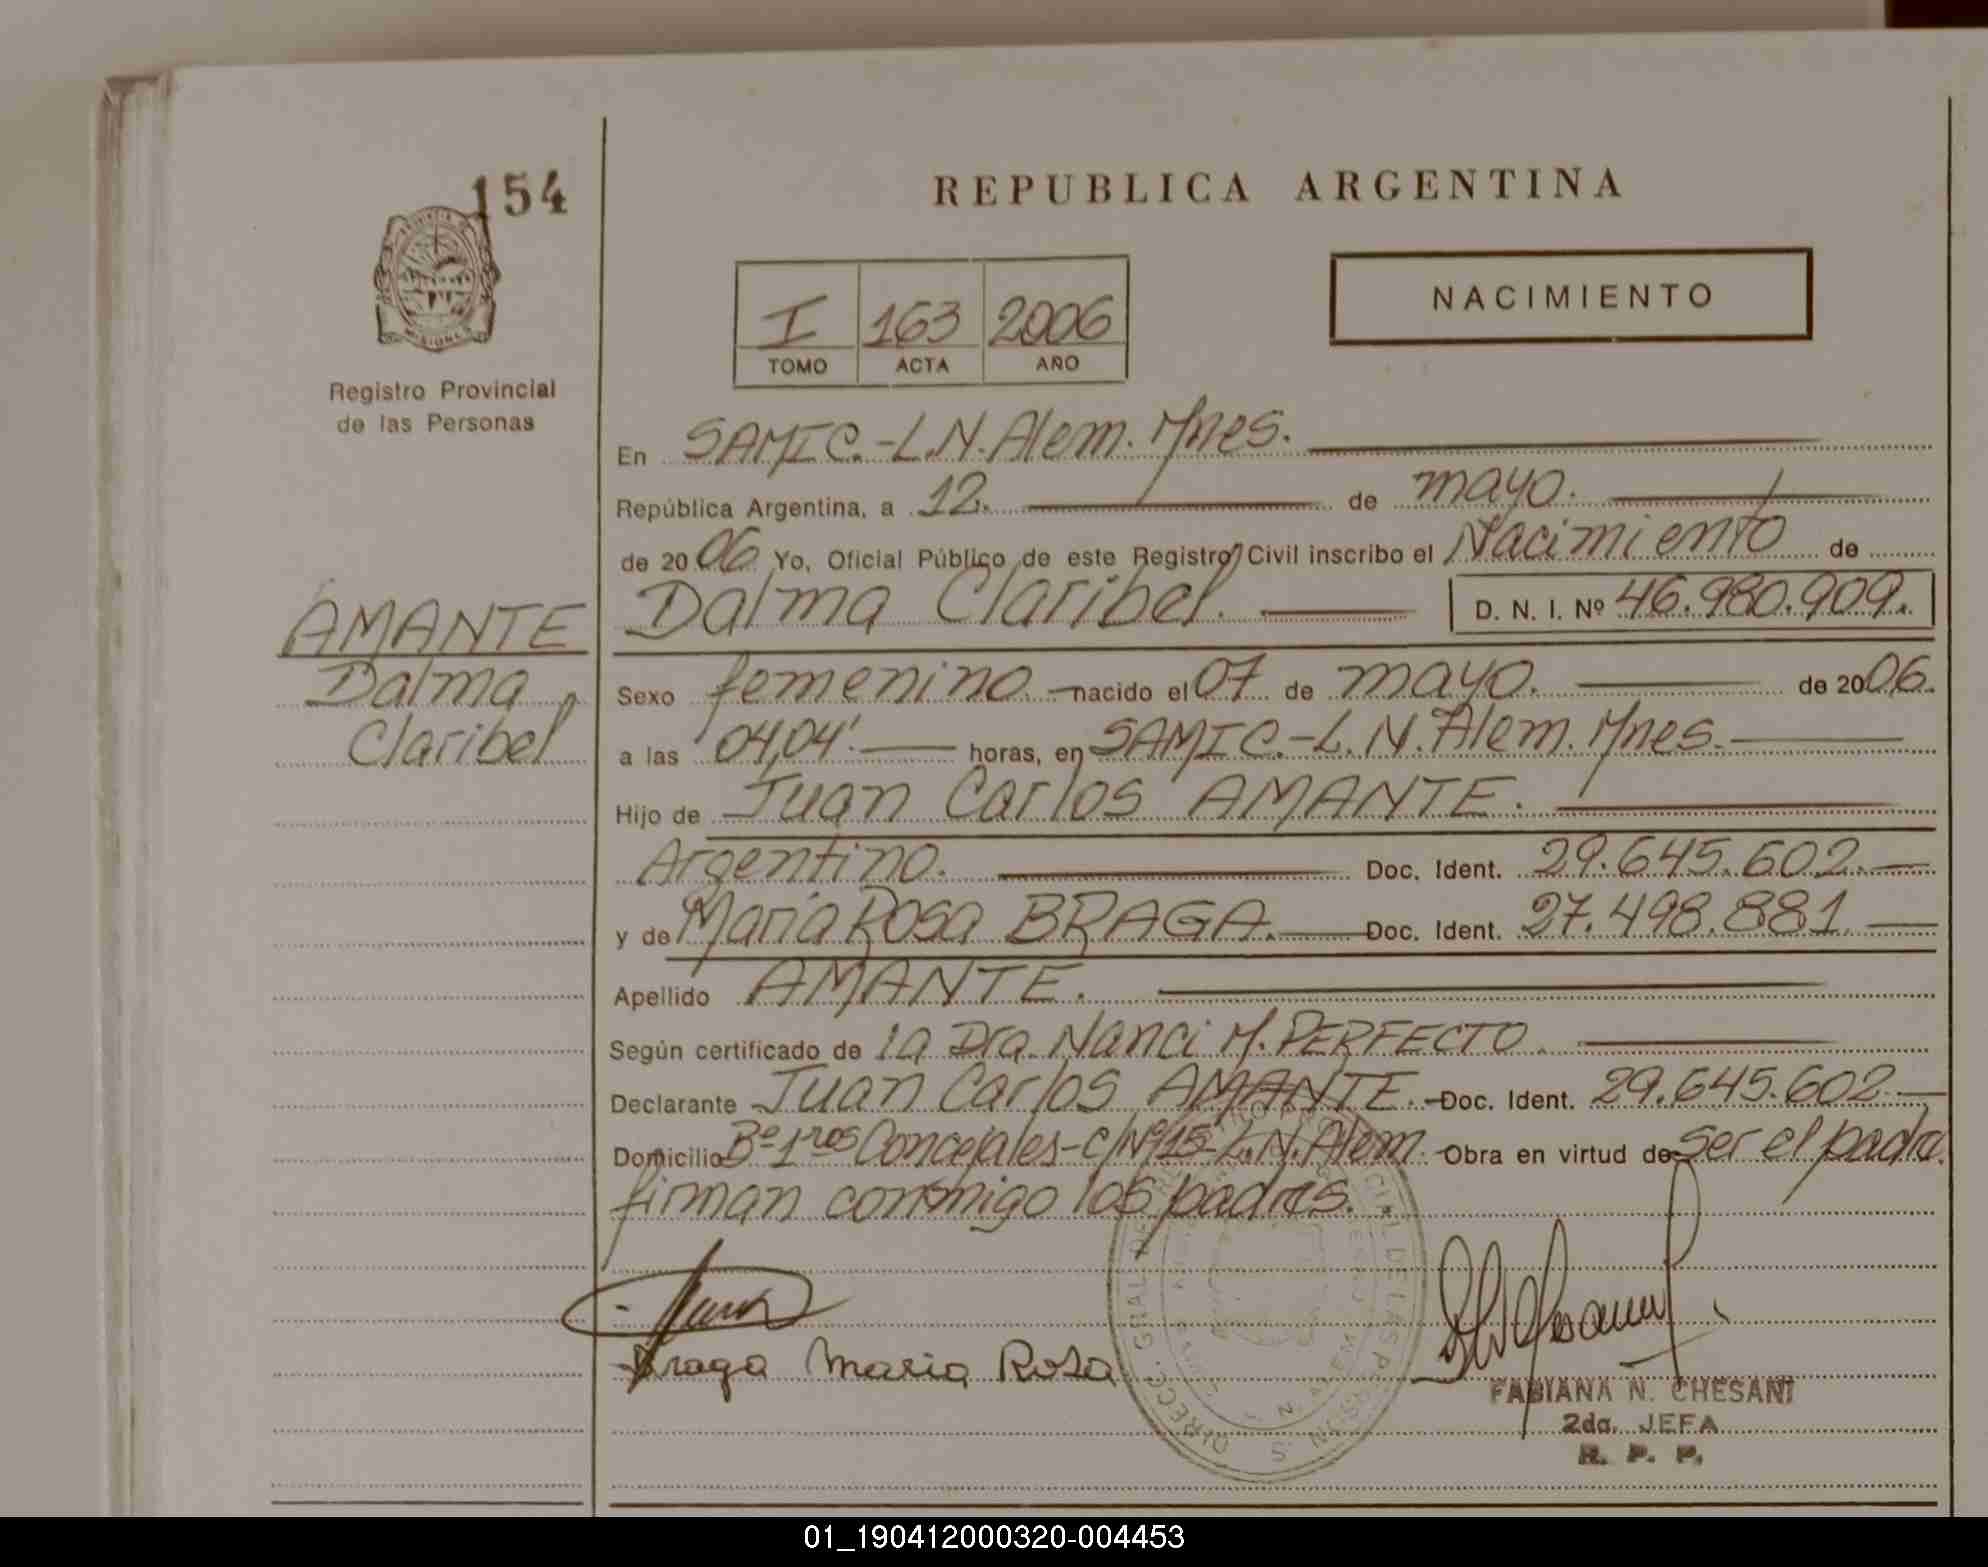 154
REPUBLICA ARGENTINA
I 163 2006
TOMO ACTA AÑO
NACIMIENTO
Registro Provincial
de las Personas
En SAMIC.-L.N.Alem.Mnes.
República Argentina, a 12. de mayo.
de 2006 Yo, Oficial Público de este Registro Civil inscribo el Nacimiento de
Dalma Claribel. D. N. I. Nº 46.980.909.
AMANTE
Dalma
Claribel
Sexo femenino nacido el 07 de mayo. de 2006.
a las 04,04'. horas, en SAMIC.-L.N.Alem.Mnes.
Hijo de Juan Carlos AMANTE.
Argentino. Doc. Ident. 29.645.602.
y de María Rosa BRAGA. Doc. Ident. 27.498.881.
Apellido AMANTE.
Según certificado de la Dra. Nanci M. PERFECTO
Declarante Juan Carlos AMANTE. Doc. Ident. 29.645.602
Domicilio Bº 1ros Concejales-c/Nº15-L.N.Alem. Obra en virtud de ser el padre.
firman conmigo los padres.
Braga Maria Rosa
DIRECC. GRAL DE PROVINCIAL DE LAS PERSONAS
FABIANA N. CHESANI
2da. JEFA
R. P. P.
01_190412000320-004453